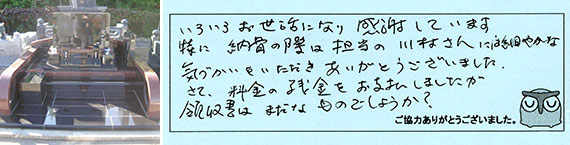 いろいろお世話になり感謝しています
特に納骨の際は担当の川村さんには細やかな
気づかいをいただきありがとうございました.
さて、料金の残金をお支払しましたが
領収書はまだなものでしょうか?
ご協力ありがとうございました。